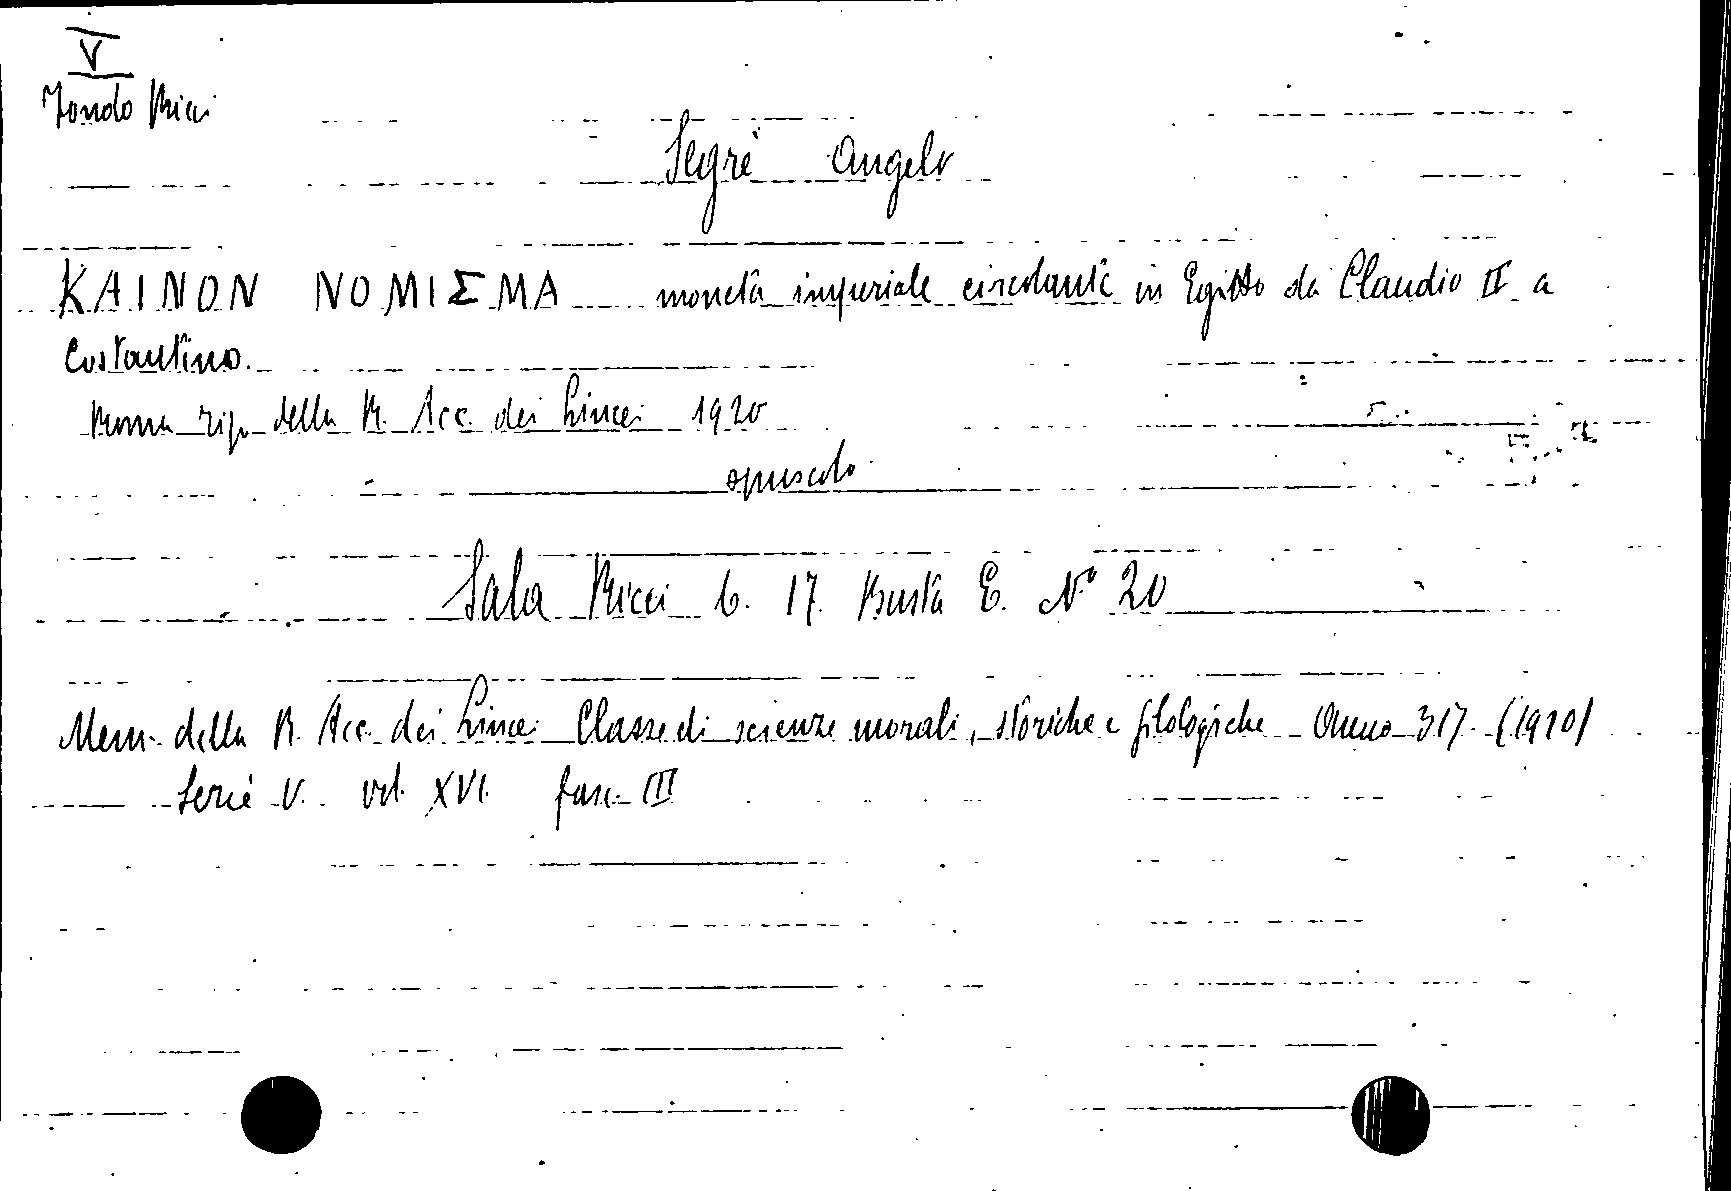 V
Fondo Ricci
Segrè Angelo
KAINON NOMIΣMA moneta imperiale circolante in Egitto da Claudio II a
Costantino.
Roma Tip. della R. Acc. dei Lincei 1920
opuscolo
Sala Ricci b. 17. Busta E. N° 20
Mem. della R. Acc. dei Lincei Classe di scienze morali, storiche e filologiche Anno 317. (1920)
Serie V. vol. XVI. fasc. III